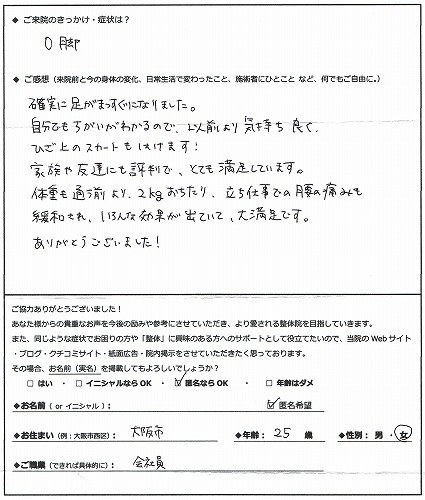 ◆ ご来院のきっかけ・症状は？
O脚
◆ ご感想（来院前と今の身体の変化、日常生活で変わったこと、施術者にひとこと など、何でもご自由に。）
確実に足がまっすぐになりました。
自分でもちがいがわかるので、以前より気持ち良く、
ひざ上のスカートもはけます！
家族や友達にも評判で、とても満足しています。
体重も通う前より、2kgおちたり、立ち仕事での腰の痛みも
緩和され、いろんな効果が出ていて、大満足です。
ありがとうございました！
ご協力ありがとうございました！
あなた様からの貴重なお声を今後の励みや参考にさせていただき、より愛される整体院を目指していきます。
また、同じような症状でお困りの方や「整体」に興味のある方へのサポートとして役立てたいので、当院のWebサイト
・ブログ・クチコミサイト・紙面広告・院内掲示をさせていただきたく思っております。
その場合、お名前（実名）を掲載してもよろしいでしょうか？
□ はい ・ □ イニシャルならOK ・ ☑ 匿名ならOK ・ □ 年齢はダメ
◆お名前（or イニシャル）： ☑ 匿名希望
◆お住まい（例：大阪市西区）： 大阪市 ◆年齢： 25 歳 ◆性別：男・女
◆ご職業（できれば具体的に）： 会社員